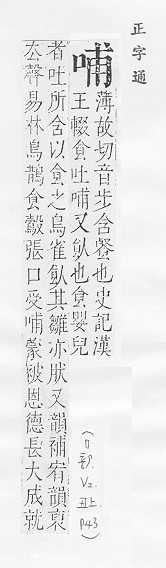 正字通
哺
薄故切音步含餐也史記漢
王輟食吐哺又飤也食嬰兒
者吐所含以食之烏雀飤其雛亦肰又韻補宥韻裒
去聲易林鳥鵲食鷇張口受哺蒙被恩德長大成就
(口部.
V2.
丑上.
P43)